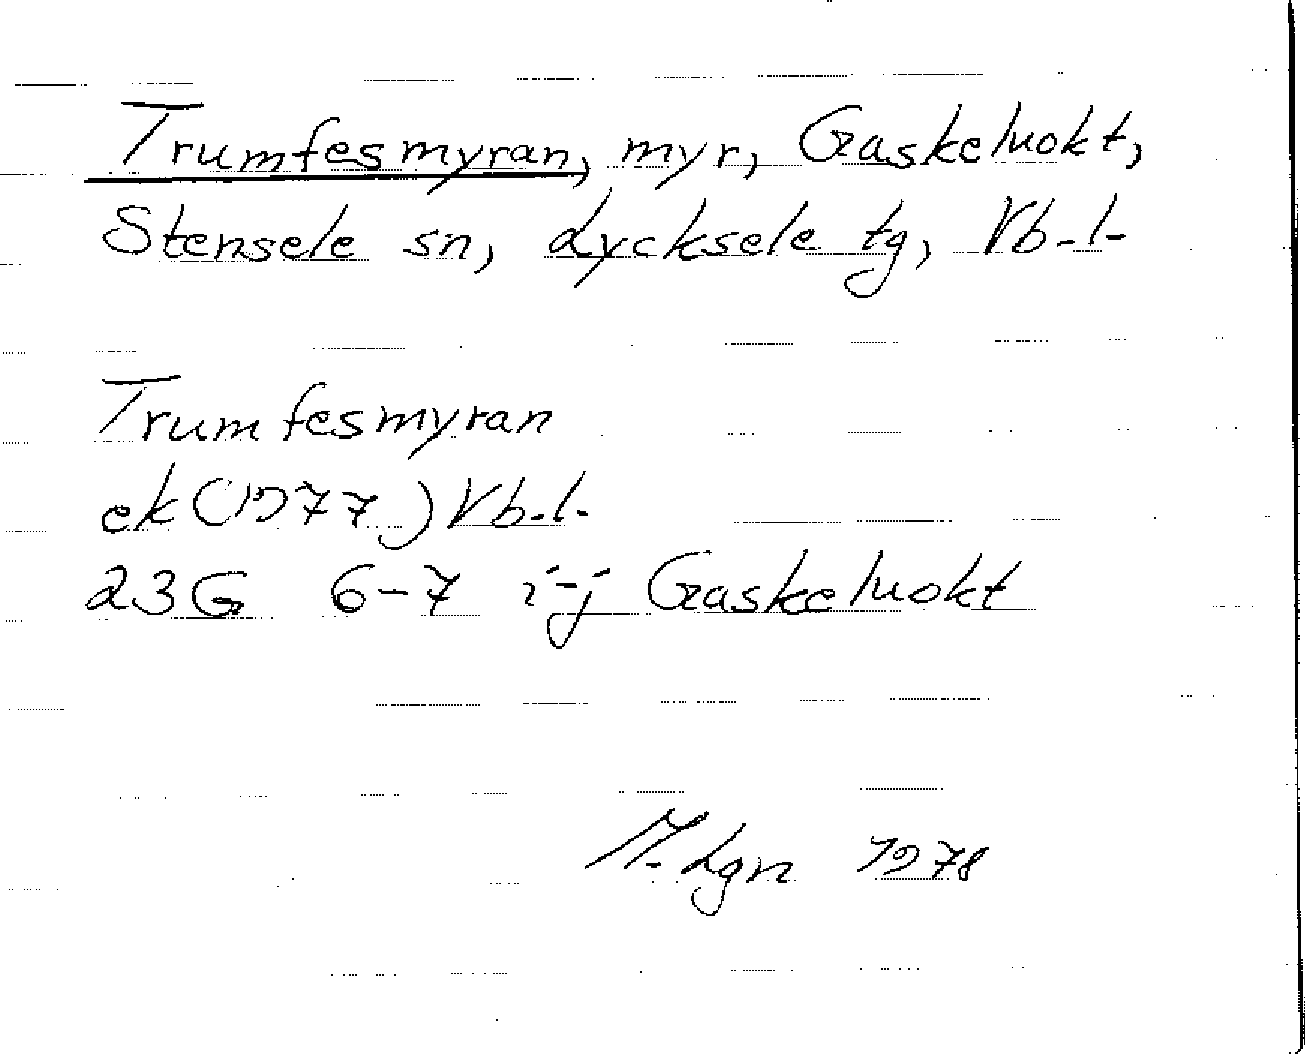 Trumfesmyran, myr, Gaskeluokt,
Stensele sn, Lycksele tg, Vb.l.
Trumfesmyran
ek (1977) Vb.l.
23G 6-7 i-j Gaskeluokt
M. Lgn 1978